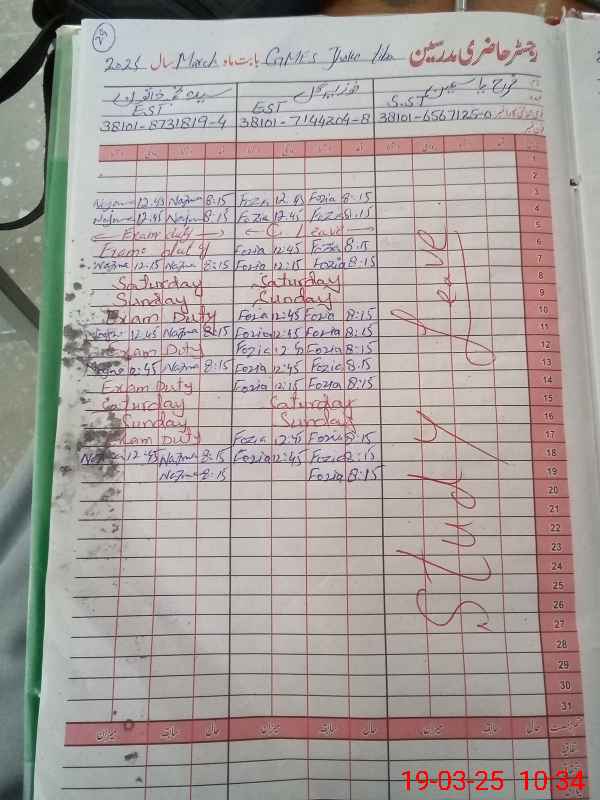 29
رجسٹر حاضری مدرسین GMES بابت ماہ March سال 2025
EST EST S.ST
38101-8731819-4 38101-7144204-8 38101-6567125-0
1
2
Najma 12:45 Najma 8:15 Fozia 12:45 Fozia 8:15 3
Najma 12:45 Najma 8:15 Fozia 12:45 Fozia 8:15 4
Exam duty C. Leave 5
Exam duty Fozia 12:45 Fozia 8:15 6
Najma 12:15 Najma 8:15 Fozia 12:15 Fozia 8:15 7
Saturday Saturday 8
Sunday Sunday 9
Exam Duty Fozia 12:45 Fozia 8:15 10
Najma 12:45 Najma 8:15 Fozia 12:45 Fozia 8:15 11
Exam Duty Fozia 12:45 Fozia 8:15 12
Najma 12:45 Najma 8:15 Fozia 12:45 Fozia 8:15 13
Exam Duty Fozia 12:15 Fozia 8:15 14
Saturday Saturday 15
Sunday Sunday 16
Exam Duty Fozia 12:45 Fozia 8:15 17
Najma 12:45 Najma 8:15 Fozia 12:45 Fozia 8:15 18
Najma 8:15 Fozia 8:15 19
Study Leave
20
21
22
23
24
25
26
27
28
29
30
31
حال سابقہ میزان حال سابقہ میزان حال سابقہ میزان
19-03-25 10:34